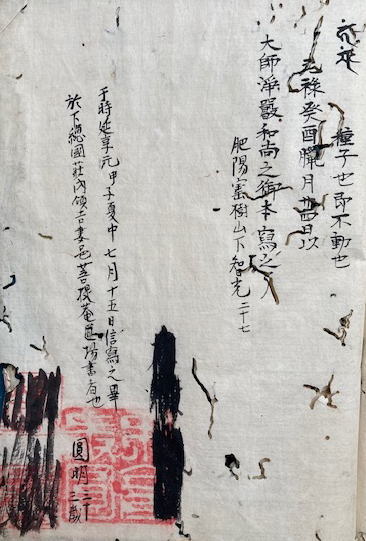 種子也即不動也
元禄癸酉臘月廿四日以
大師浄嚴和尚之御本寫之
肥陽富樹山下智光 二十七
于時延享元甲子夏中七月十五日信寫之畢
於下總國莊内領吉妻邑菩提菴道場書者也
圓明 二十三歳